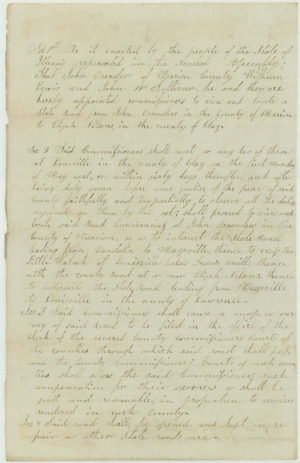 Sec 1st Be it enacted by the people of the State of
Illinois represented in the General Assembly;
That John Crenshaw of Marion County William
Lewis and John W Sullivan be and they are
hereby appointed commissioners to view and locate a
State road from John Crenshaws in the County of Marion
to Elijah Nelsons, in the county of Clay.
Sec 2 Said Commissioners shall meet or any two of them
at Louisville in the county of Clay on the first monday
of May next, or within sixty days thereafter and after
being duly sworn before some justice of the peace of said
County faithfully and impartially to observe all the duties
on them by the act; shall proceed to view and
locate said road Commencing at John Crenshaws in the
County of Marion, so as to intersect the State Road
leading from Vandalia to Maysville, thence to cross the
Little Wabash at Louisville thence
with the county road at or near Elijah Nelsons thence
to intersect the State road leading from Maysville
to Louisville in the county of Lawrence.
Sec 3 Said Commissioners shall cause a map or sur
vey of said road to be filed in the office of the
clerk of the several County commissioners Court of
the counties through which said road shall pass
and the County Commissioners Courts of such coun
ties shall allow the said Commissioners such
compensation for their services as shall be
just and reasonable, in proportion to services
rendered in each county.
Sec 4 Said road shall be opened and kept in re
pair as other State roads are.